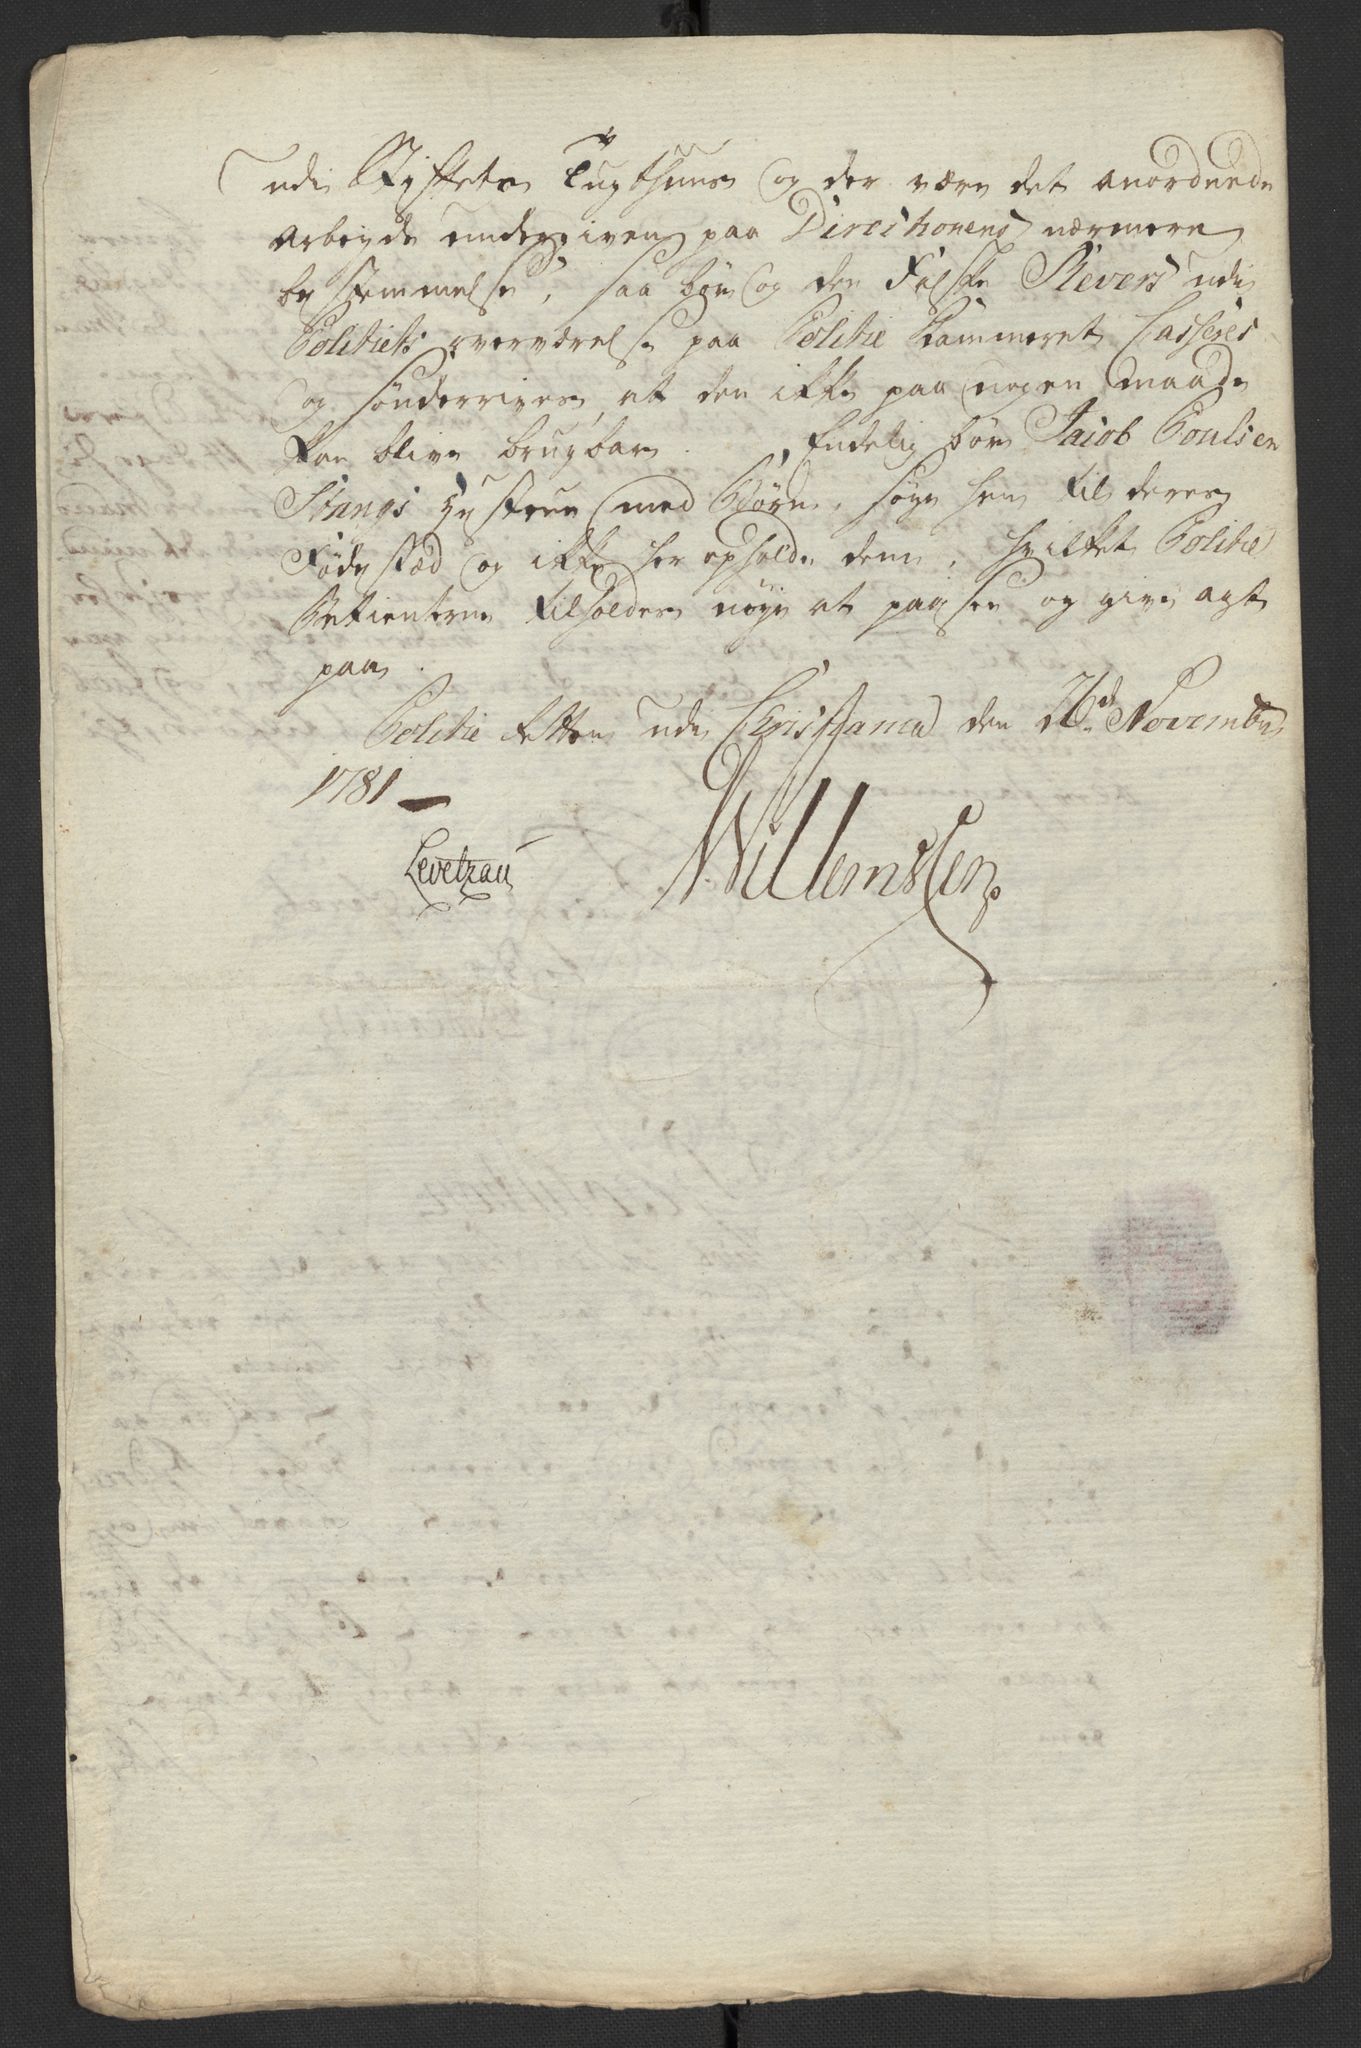 udi Stiftets Tugthuus og der være det anordnede
Arbeyde undergiven paa Directionens nærmere
bestemmelse, saa bør og den Falske Stever udi
Politiets overværelse paa Politie Kammeret Casseres
og sønderrives, at den ikke paa nogen maade
kan blive brugbar. Endelig bør Jacob Poulsen
Stangs Hustrue med Børn, søge hen til deres
Fødested og ikke her opholde dem, hvilket Politie
Betienterne tilholdes nøye at paasee og give agt
paa.
Politie Retten udi Christiania den 26de November
1781
Levetzau Willemssen